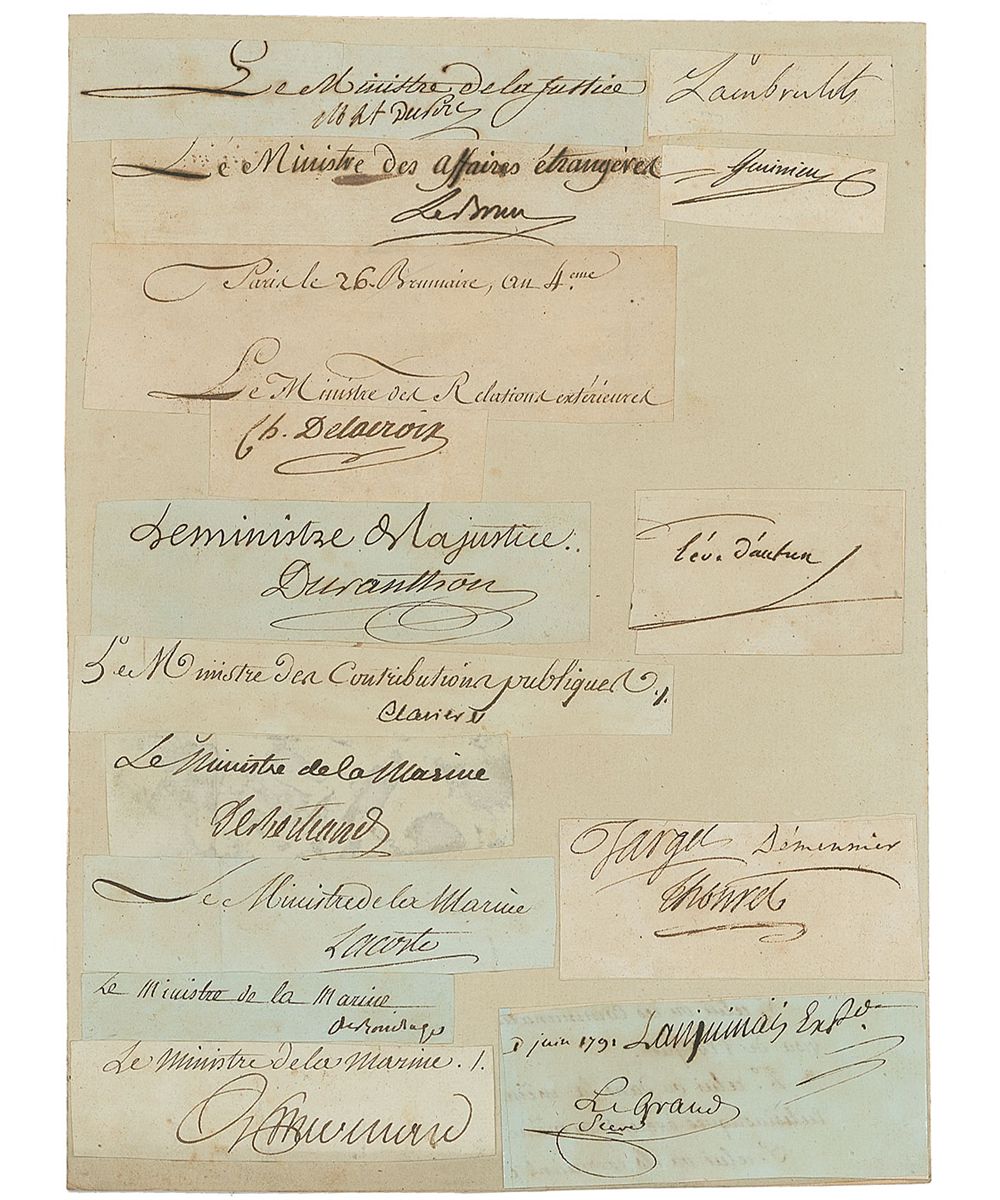 Le Ministre de la Justice
M.L.F. Duport
Lambrechts
Le Ministre des affaires étrangeres
LeBrun
Paris le 26. Brumaire, an 4.eme
Le Ministre des Relations extérieures
Ch. Delacroix
Le ministre de la justice..
Duranthon
l'év. d'autun
Le Ministre des Contributions publiques ./.
Claviere
Le Ministre de la Marine
De Bertrand
Target Démeunier
Thouret
Le Ministre de la Marine
Lacoste
Le Ministre de la Marine
juin 1791 Lanjuinais Ex Pd.
Le Grand
Le Ministre de la Marine ./.